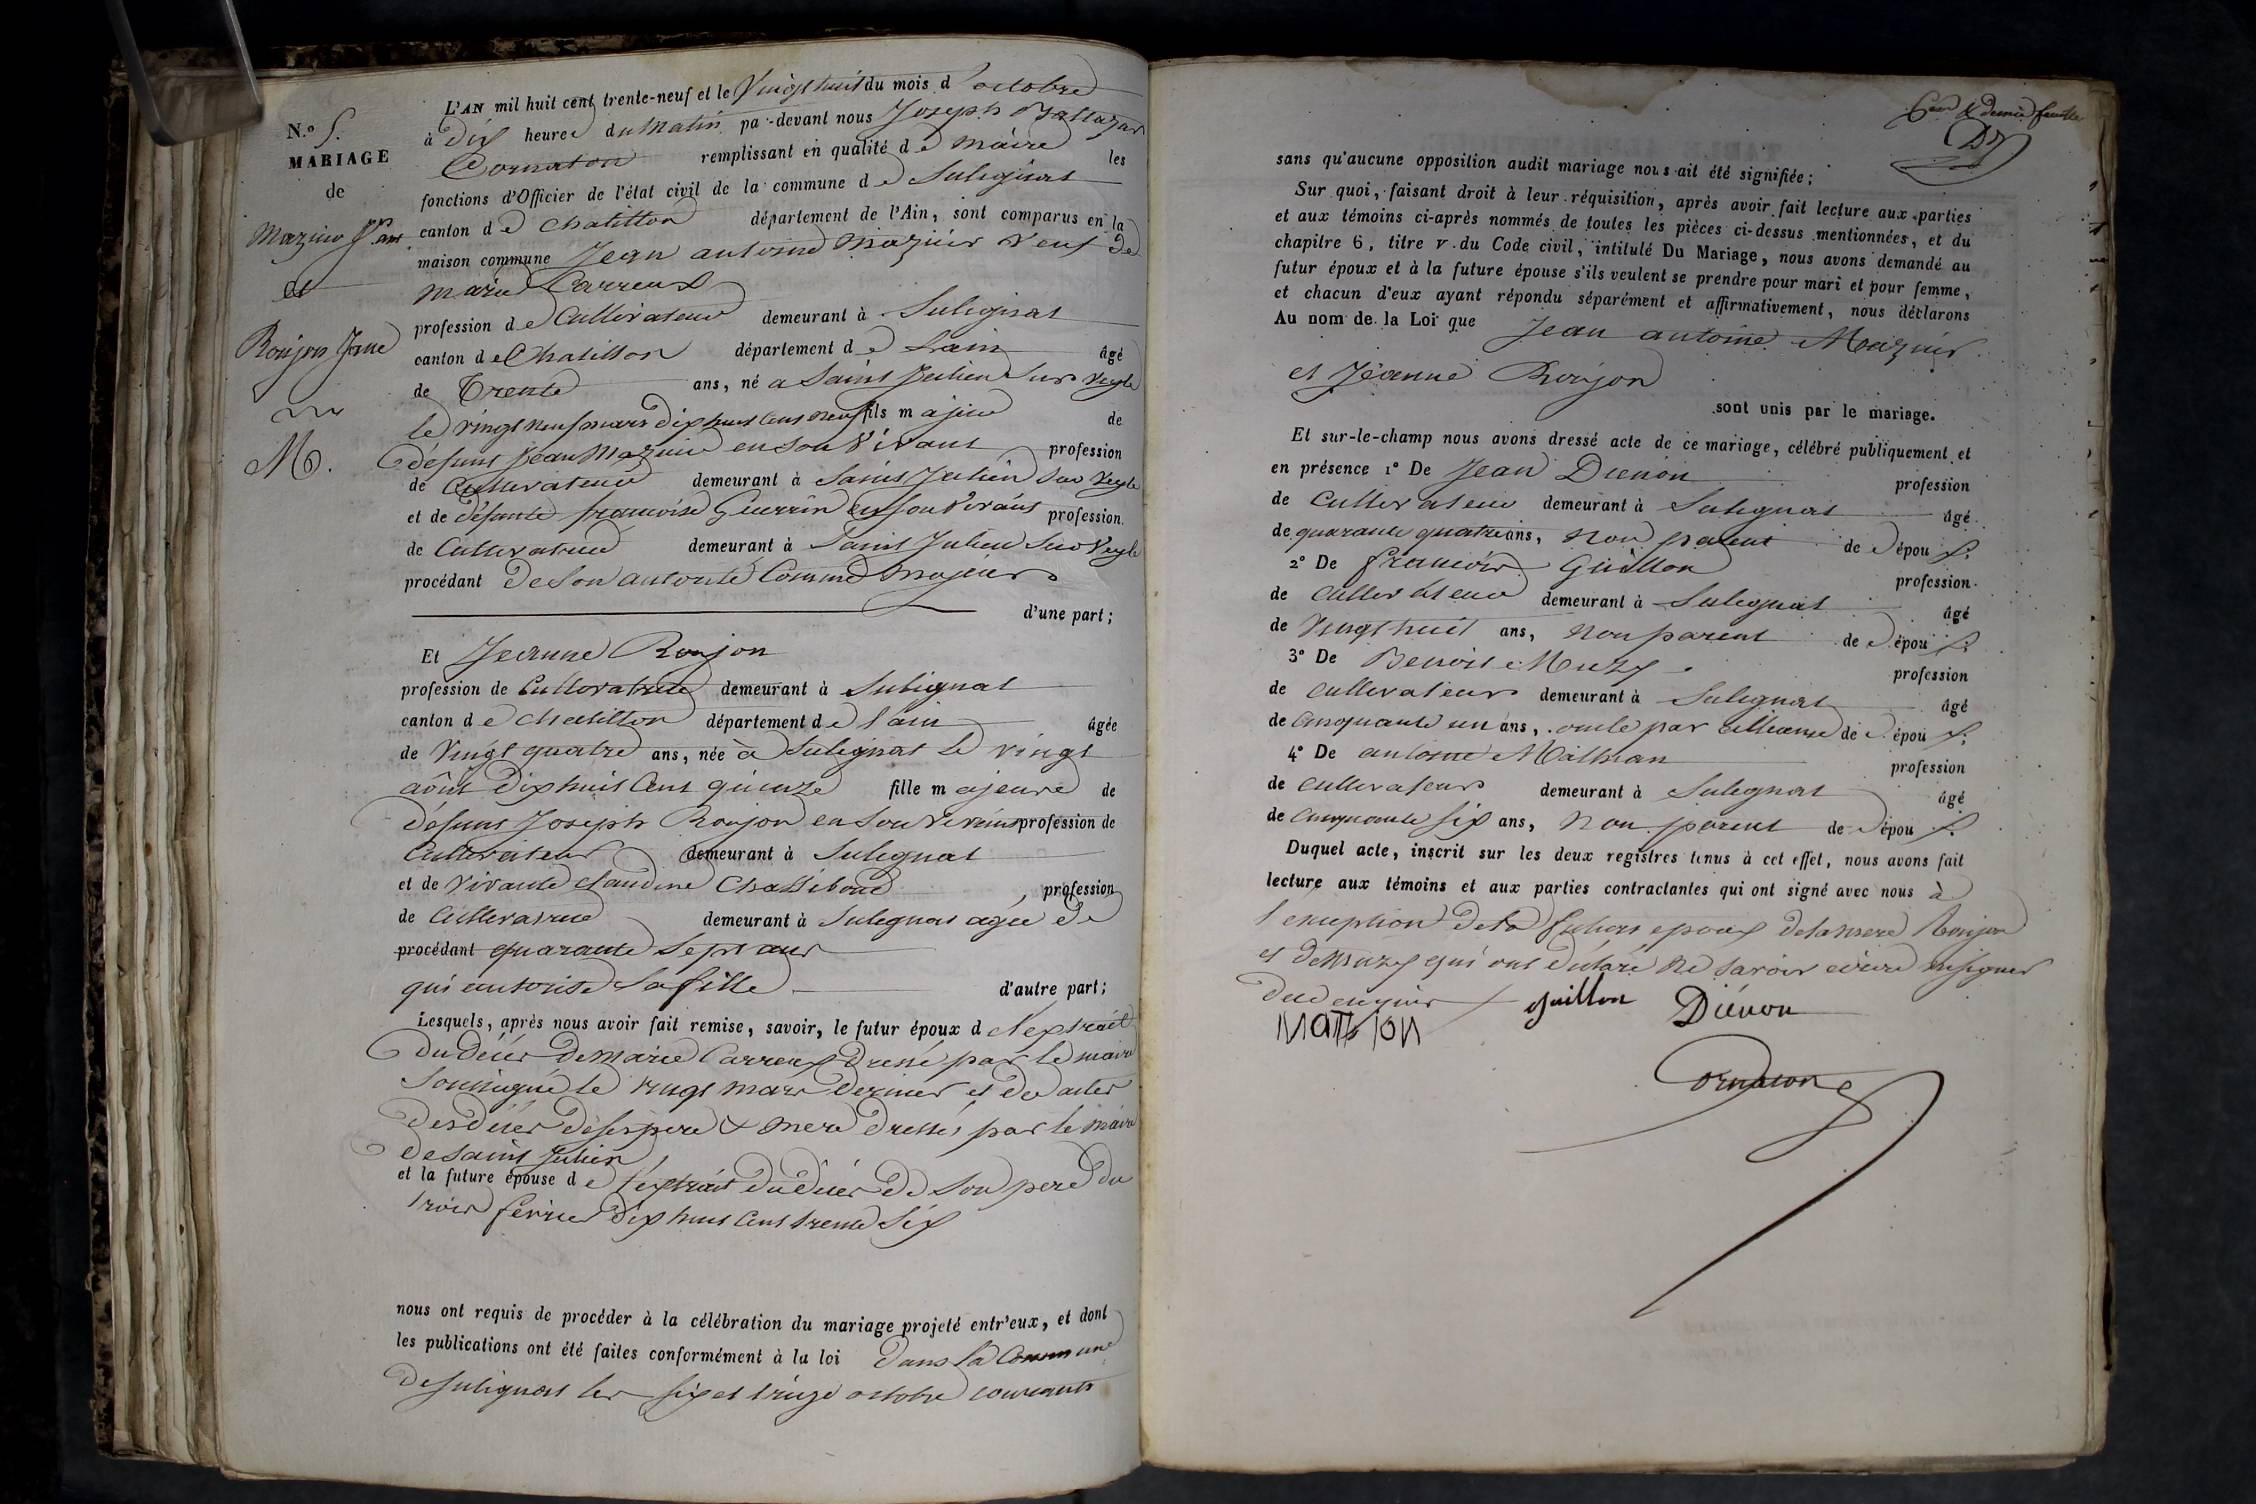 N.o 5.
MARIAGE
de
Mazuir Jn ant
et
Roujon Jeanne
M.
L'AN mil huit cent trente-neuf et le Vingt huit du mois d octobre
à dix heures du matin, par-devant nous Joseph Baltazar
Cornaton remplissant en qualité de maire les
fonctions d'Officier de l'état civil de la commune de Sulignat
canton de chatillon département de l'Ain, sont comparus en la
maison commune Jean antoine Mazuir veuf de
marie Carreux
profession de Cultivateur demeurant à Sulignat
canton de Chatillon département de l'ain âgé
de Trente ans, né a Saint Julien Sur Veyle
le vingt neuf mars dix huit cent neuf fils majeur de
défunt Jean Mazuir en son vivant profession
de Cultivateur demeurant à Saint Julien Sur Veyle
et de défunte francoise Guerrin en son vivant profession
de Cultivatrice demeurant à Saint Julien Sur Veyle
procédant de son autorité Comme majeur
d'une part;
Et Jeanne Roujon
profession de Cultivatrice demeurant à Sulignat
canton de chatillon département de l'ain âgée
de Vingt quatre ans, née à Sulignat le vingt
août dix huit cent quinze fille majeure de
défunt Joseph Roujon en son vivant profession de
Cultivateur demeurant à Sulignat
et de vivante claudine Chassiboud profession
de Cultivatrice demeurant à Sulignat agée de
procédant quarante sept ans
qui autorise sa fille d'autre part;
Lesquels, après nous avoir fait remise, savoir, le futur époux de l'extrait
du décès de marie Carreux dressé par le maire
soussigné le vingt mars dernier et de actes
des décès de ses père & mere dressés par le maire
de saint Julien
et la future épouse de l'extrait du décès de son pere du
trois fevrier dix huit cent trente six
nous ont requis de procéder à la célébration du mariage projeté entr'eux, et dont
les publications ont été faites conformément à la loi dans la Commune
de Sulignat les six et treize octobre courants
6eme & derniere feuille
sans qu'aucune opposition audit mariage nous ait été signifiée;
Sur quoi, faisant droit à leur réquisition, après avoir fait lecture aux parties
et aux témoins ci-après nommés de toutes les pièces ci-dessus mentionnées, et du
chapitre 6, titre V du Code civil, intitulé Du Mariage, nous avons demandé au
futur époux et à la future épouse s'ils veulent se prendre pour mari et pour femme,
et chacun d'eux ayant répondu séparément et affirmativement, nous déclarons
Au nom de la Loi que Jean antoine Mazuir
et Jeanne Roujon
sont unis par le mariage.
Et sur-le-champ nous avons dressé acte de ce mariage, célébré publiquement et
en présence 1° De Jean Dienon profession
de Cultivateur demeurant à Sulignat âgé
de quarante quatre ans, non parent des époux.
2° De francois Guillon profession
de cultivateur demeurant à Sulignat âgé
de Vingt huit ans, non parent des époux.
3° De Benoit Muzy profession
de cultivateur demeurant à Sulignat âgé
de cinquante un ans, oncle par alliance des époux.
4° De antoine Mathian profession
de cultivateur demeurant à Sulignat âgé
de cinquante six ans, non parent des époux.
Duquel acte, inscrit sur les deux registres tenus à cet effet, nous avons fait
lecture aux témoins et aux parties contractantes qui ont signé avec nous à
l'exception de futurs epoux de la mere Roujon
et de muzy qui ont déclaré ne savoir écrire ni signer
de ce enquis
guillon Diénon
Cornaton